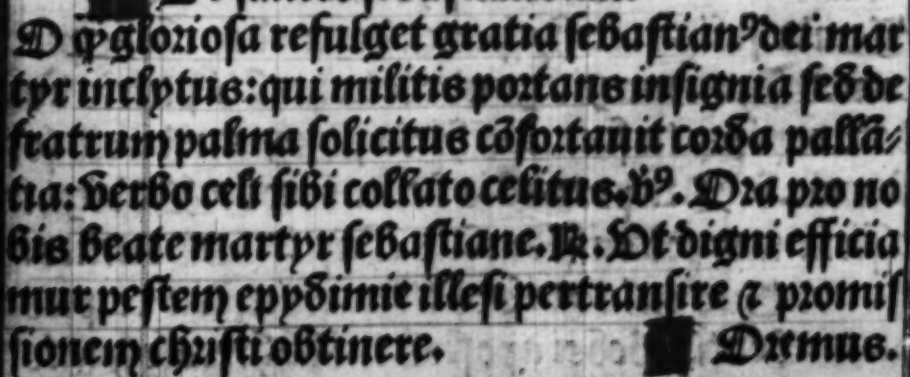 O ꝙ̃ glorioſa refulget gratia ſebaſtianꝰ dei mar
tyr inclytus: qui militis portans inſignia ſed de
fratrum palma ſolicitus cõfortauit corda pallã⸗
tia: verbo celi ſibi collato celitus. v̾ꝰ. Ora pro no
bis beate martyr ſebaſtiane. ꝶ. Ut digni efficia
mur peſtem epydimie illeſi pertranſire ⁊ promiſ
ſionem chriſti obtinere. Oremus.